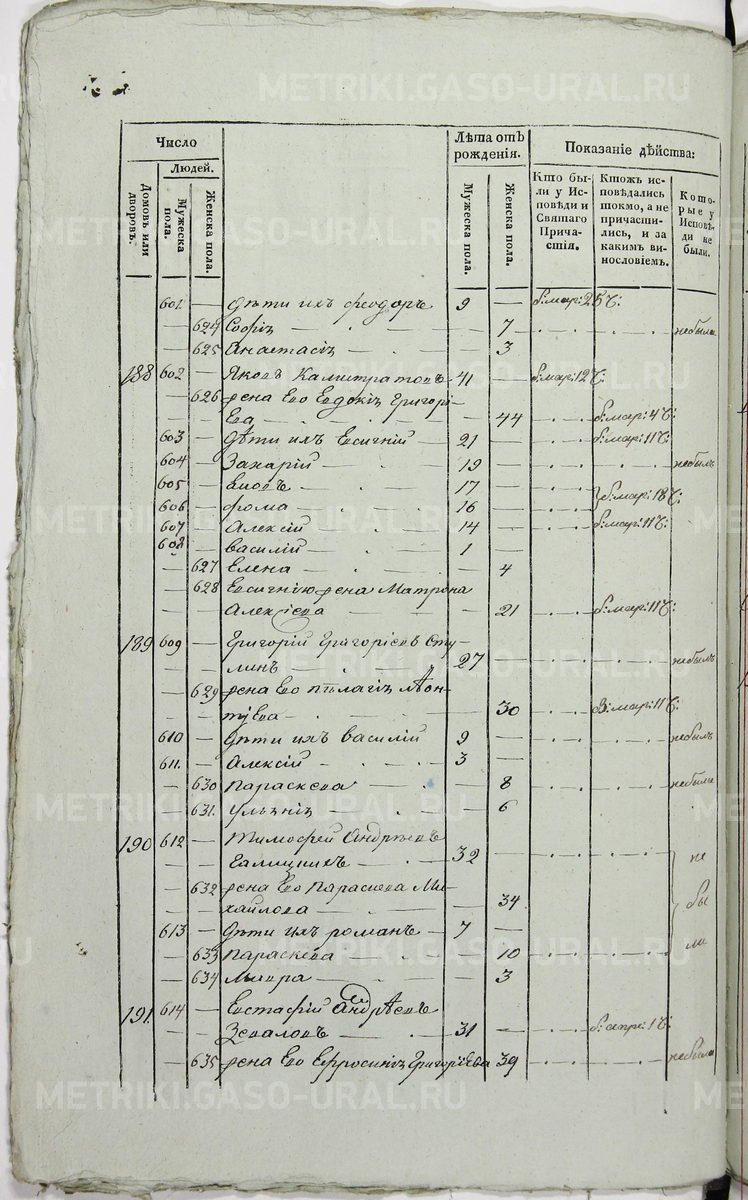 Число
Людей.
Домовъ или дворовъ.
Мужеска пола.
Женска пола.
Лѣта отъ рожденія.
Мужеска пола.
Женска пола.
Показаніе дѣйства:
Кто бы-
ли у Ис-
повѣди и
Святаго
Прича-
стія.
Ктожъ ис-
повѣдались
токмо, а не
причасти-
лись, и за
какимъ ви-
нословіемъ.
Кото-
рые у
Исповѣ-
ди не
были.
601 — дѣти ихъ феодоръ 9 — б: мар: 25 ч:
— 624 Софія — 7 небыла
— 625 Анастасія — 3
188 602 — Яковъ Калистратовъ 41 — б: мар: 12 ч:
— 626 жена Его Евдокія Григорі-
Ева — 44 б: мар: 4 ч:
603 — дѣти ихъ Евсигній 21 — б: мар: 11 ч:
604 — Захарій 19 — небылъ
605 — 17 —
606 — фома 16 — б: мар: 18 ч:
607 — Алексій 14 — б: мар: 11 ч:
608 — василій 1 —
— 627 Елена — 4
— 628 Евсигнію жена Матрона
Алексіева — 21 б: мар: 11 ч:
189 609 — Григорій Григоріевъ Сту-
линъ 27 — небылъ
— 629 жена Его пелагія лѣон-
тіева — 30 мар: 11 ч:
610 — дѣти ихъ василій 9 — небылъ
611. — Алексій 3 —
— 630 параскева — 8 небыла
— 631. ульянія — 6
190 612 — Тимофей Андрѣевъ
Галицкихъ 32 — не
— 632 жена Его Параскева Ми-
хайлова — 34 бы
613 — дѣти ихъ романъ 7 —
— 633 параскева — 10 ли
— 634 Мавра — 3
191. 614 — Евстафій Андрѣевъ
31 — б: апре: 1 ч:
— 635 жена Его Ефросинія Григоріева 39 небыла
METRIKI.GASO-URAL.RU